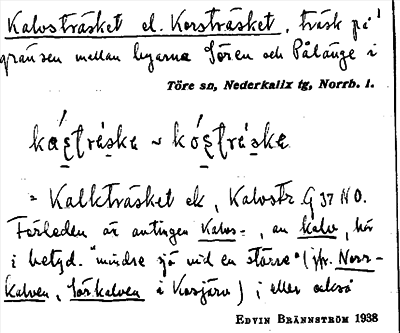 Kalvsträsket el. Korsträsket, träsk på
gränsen mellan byarna Sören och Pålänge i
Töre sn, Nederkalix tg, Norrb. l.
= Kalkträsket ek, Kalvstr. G 37 NO.
Förleden är antingen Kalvs-, av kalv, här
i betyd. "mindre sjö vid en större" (jfr. Norr-
kalven, Sörkalven i Kosjärv); eller också
EDVIN BRÄNNSTRÖM 1938